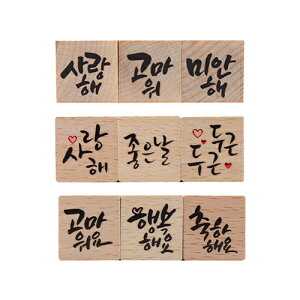 사랑
해
고마
워
미안
해
사랑
해
좋은날
두근
두근
고마
워요
행복
해요
축하
해요